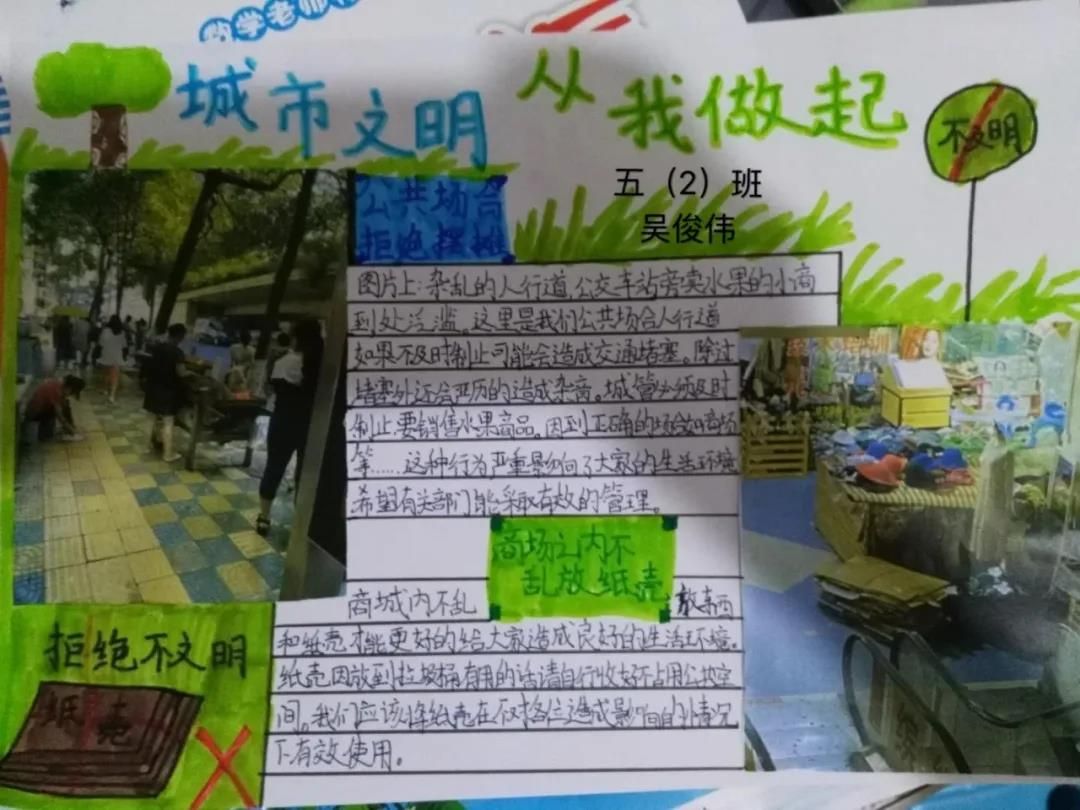 数学老师
城市文明 从我做起
不文明
五（2）班
吴俊伟
公共场合
拒绝摆摊
图片上:杂乱的人行道,公交车站旁卖水果的小商
到处泛滥。这里是我们公共场合人行道
如果不及时制止可能会造成交通堵塞。除过
堵塞外还会严历的造成杂商。城管必须及时
制止要销售水果商品。因到正确的场合如商场
等……这种行为严重影响了大家的生活环境
希望有关部门能采取有效的管理。
商场之内不
乱放纸壳
商城内不乱 放东西
和纸壳才能更好的给大家造成良好的生活环境。
纸壳因放到垃圾桶有用的话请自行收好不占用公共空
间。我们应该将纸壳在不 造成影 的情况
下有效使用。
拒绝不文明
纸壳